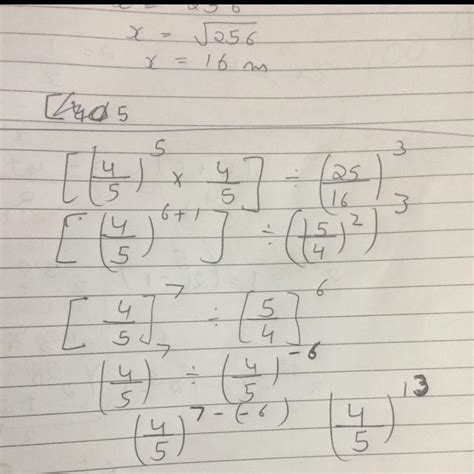 x = √256
x = 16 m
[(4/5)^5 × 4/5] ÷ (25/16)^3
[(4/5)^6+1] ÷ ((5/4)^2)^3
[4/5]^7 ÷ [5/4]^6
(4/5)^7 ÷ (4/5)^-6
(4/5)^7-(-6) (4/5)^13